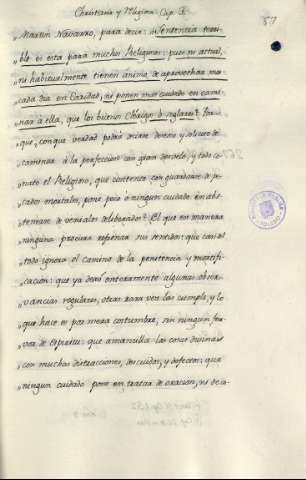 Christiana y Religiosa. Cap. R.
87
Martin Navarro, para decir: Sentencia terri-
„ble es esta para muchos Religiosos: pues ni actual,
„ni habitualmente tienen animo de aprovechar mas
„cada dia en Caridad, ni ponen mas cuidado en cami-
„nar á ella, que los buenos Obispos ó seglares? Por
„que, con que verdad podrá decirse deseoso y solicito de
„caminar á la perfeccion con gran desvelo, y todo co-
„nato el Religioso, que contento con guardarse de pe-
„cados mortales, pone poco ó ningun cuidado en abs-
„tenerse de veniales deliberados? El que en manera
„ninguna procura refrenar sus sentidos: que casi del
„todo ignora el camino de la penitencia y mortifi-
„cacion: que ya dexó enteramente algunas obser-
„vancias regulares, otras rara vez las cumple, y lo
„que hace es por mera costumbre, sin ningun fer-
„vor de espiritu: que amancilla las cosas divinas
„con muchas distracciones, descuidos, y defectos: que
„ningun cuidado pone en tratar de oracion, ni de co-